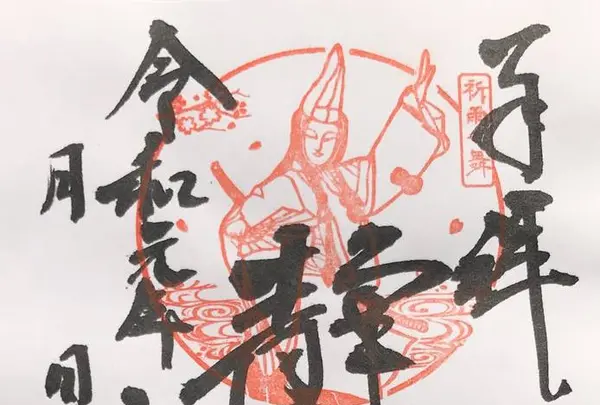 奉拝
祈雨 舞
静
令和元年
月 日